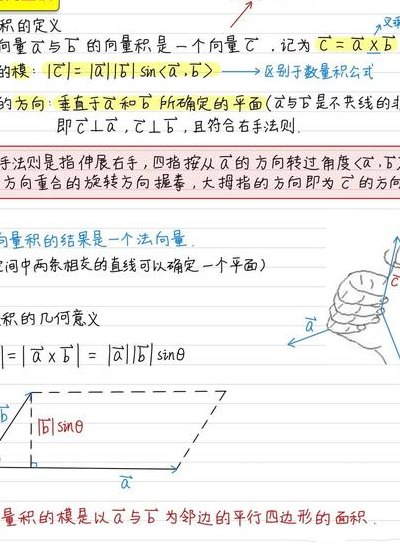 积的定义
向量a⃗与b⃗的向量积是一个向量c⃗，记为c⃗=a⃗×b⃗
的模：|c⃗|=|a⃗||b⃗|sin<a⃗,b⃗> → 区别于数量积公式
的方向：垂直于a⃗和b⃗所确定的平面(a⃗与b⃗是不共线的非
即c⃗⊥a⃗，c⃗⊥b⃗，且符合右手法则.
手法则是指伸展右手，四指按从a⃗的方向转过角度<a⃗,b⃗
方向重合的旋转方向握拳，大拇指的方向即为c⃗的方向
向量积的结果是一个法向量.
空间中两条相交的直线可以确定一个平面)
c⃗
a⃗
积的几何意义
|=|a⃗×b⃗|=|a⃗||b⃗|sinθ
b⃗
|b⃗|sinθ
a⃗
量积的模是以a⃗与b⃗为邻边的平行四边形的面积.